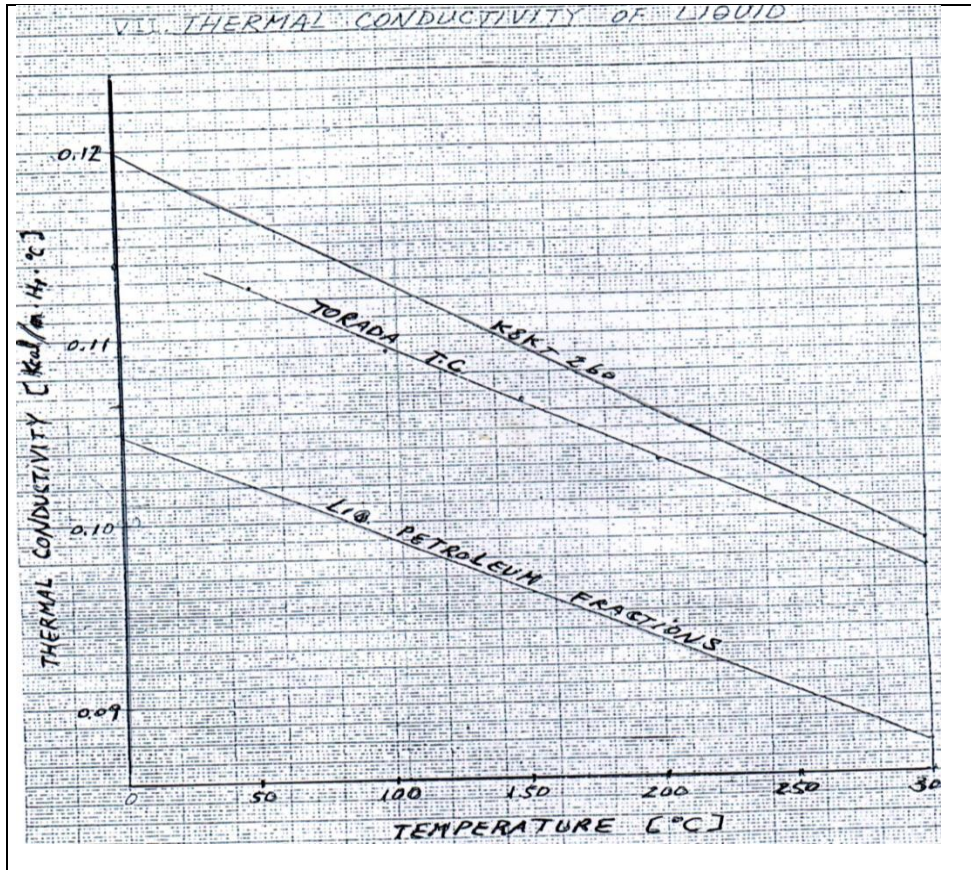 VII. THERMAL CONDUCTIVITY OF LIQUID
0.12
0.11
0.10
0.09
THERMAL CONDUCTIVITY [Kcal/m·Hr·°C]
KSKT 260
TORADA T.C.
LIQ. PETROLEUM FRACTIONS
0 50 100 150 200 250 30
TEMPERATURE [°C]